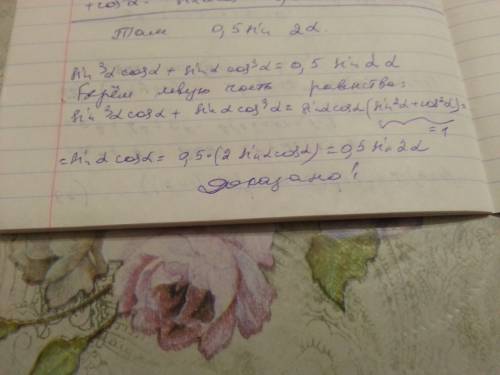 Там 0,5 sin 2α
sin³α cosα + sinα cos³α = 0,5 sin 2α
Берём левую часть равенства:
sin³α cosα + sinα cos³α = sinα cosα (sin²α + cos²α) =
= 1
= sin α cosα = 0,5 · (2 sinα cosα) = 0,5 sin 2α
Доказано!